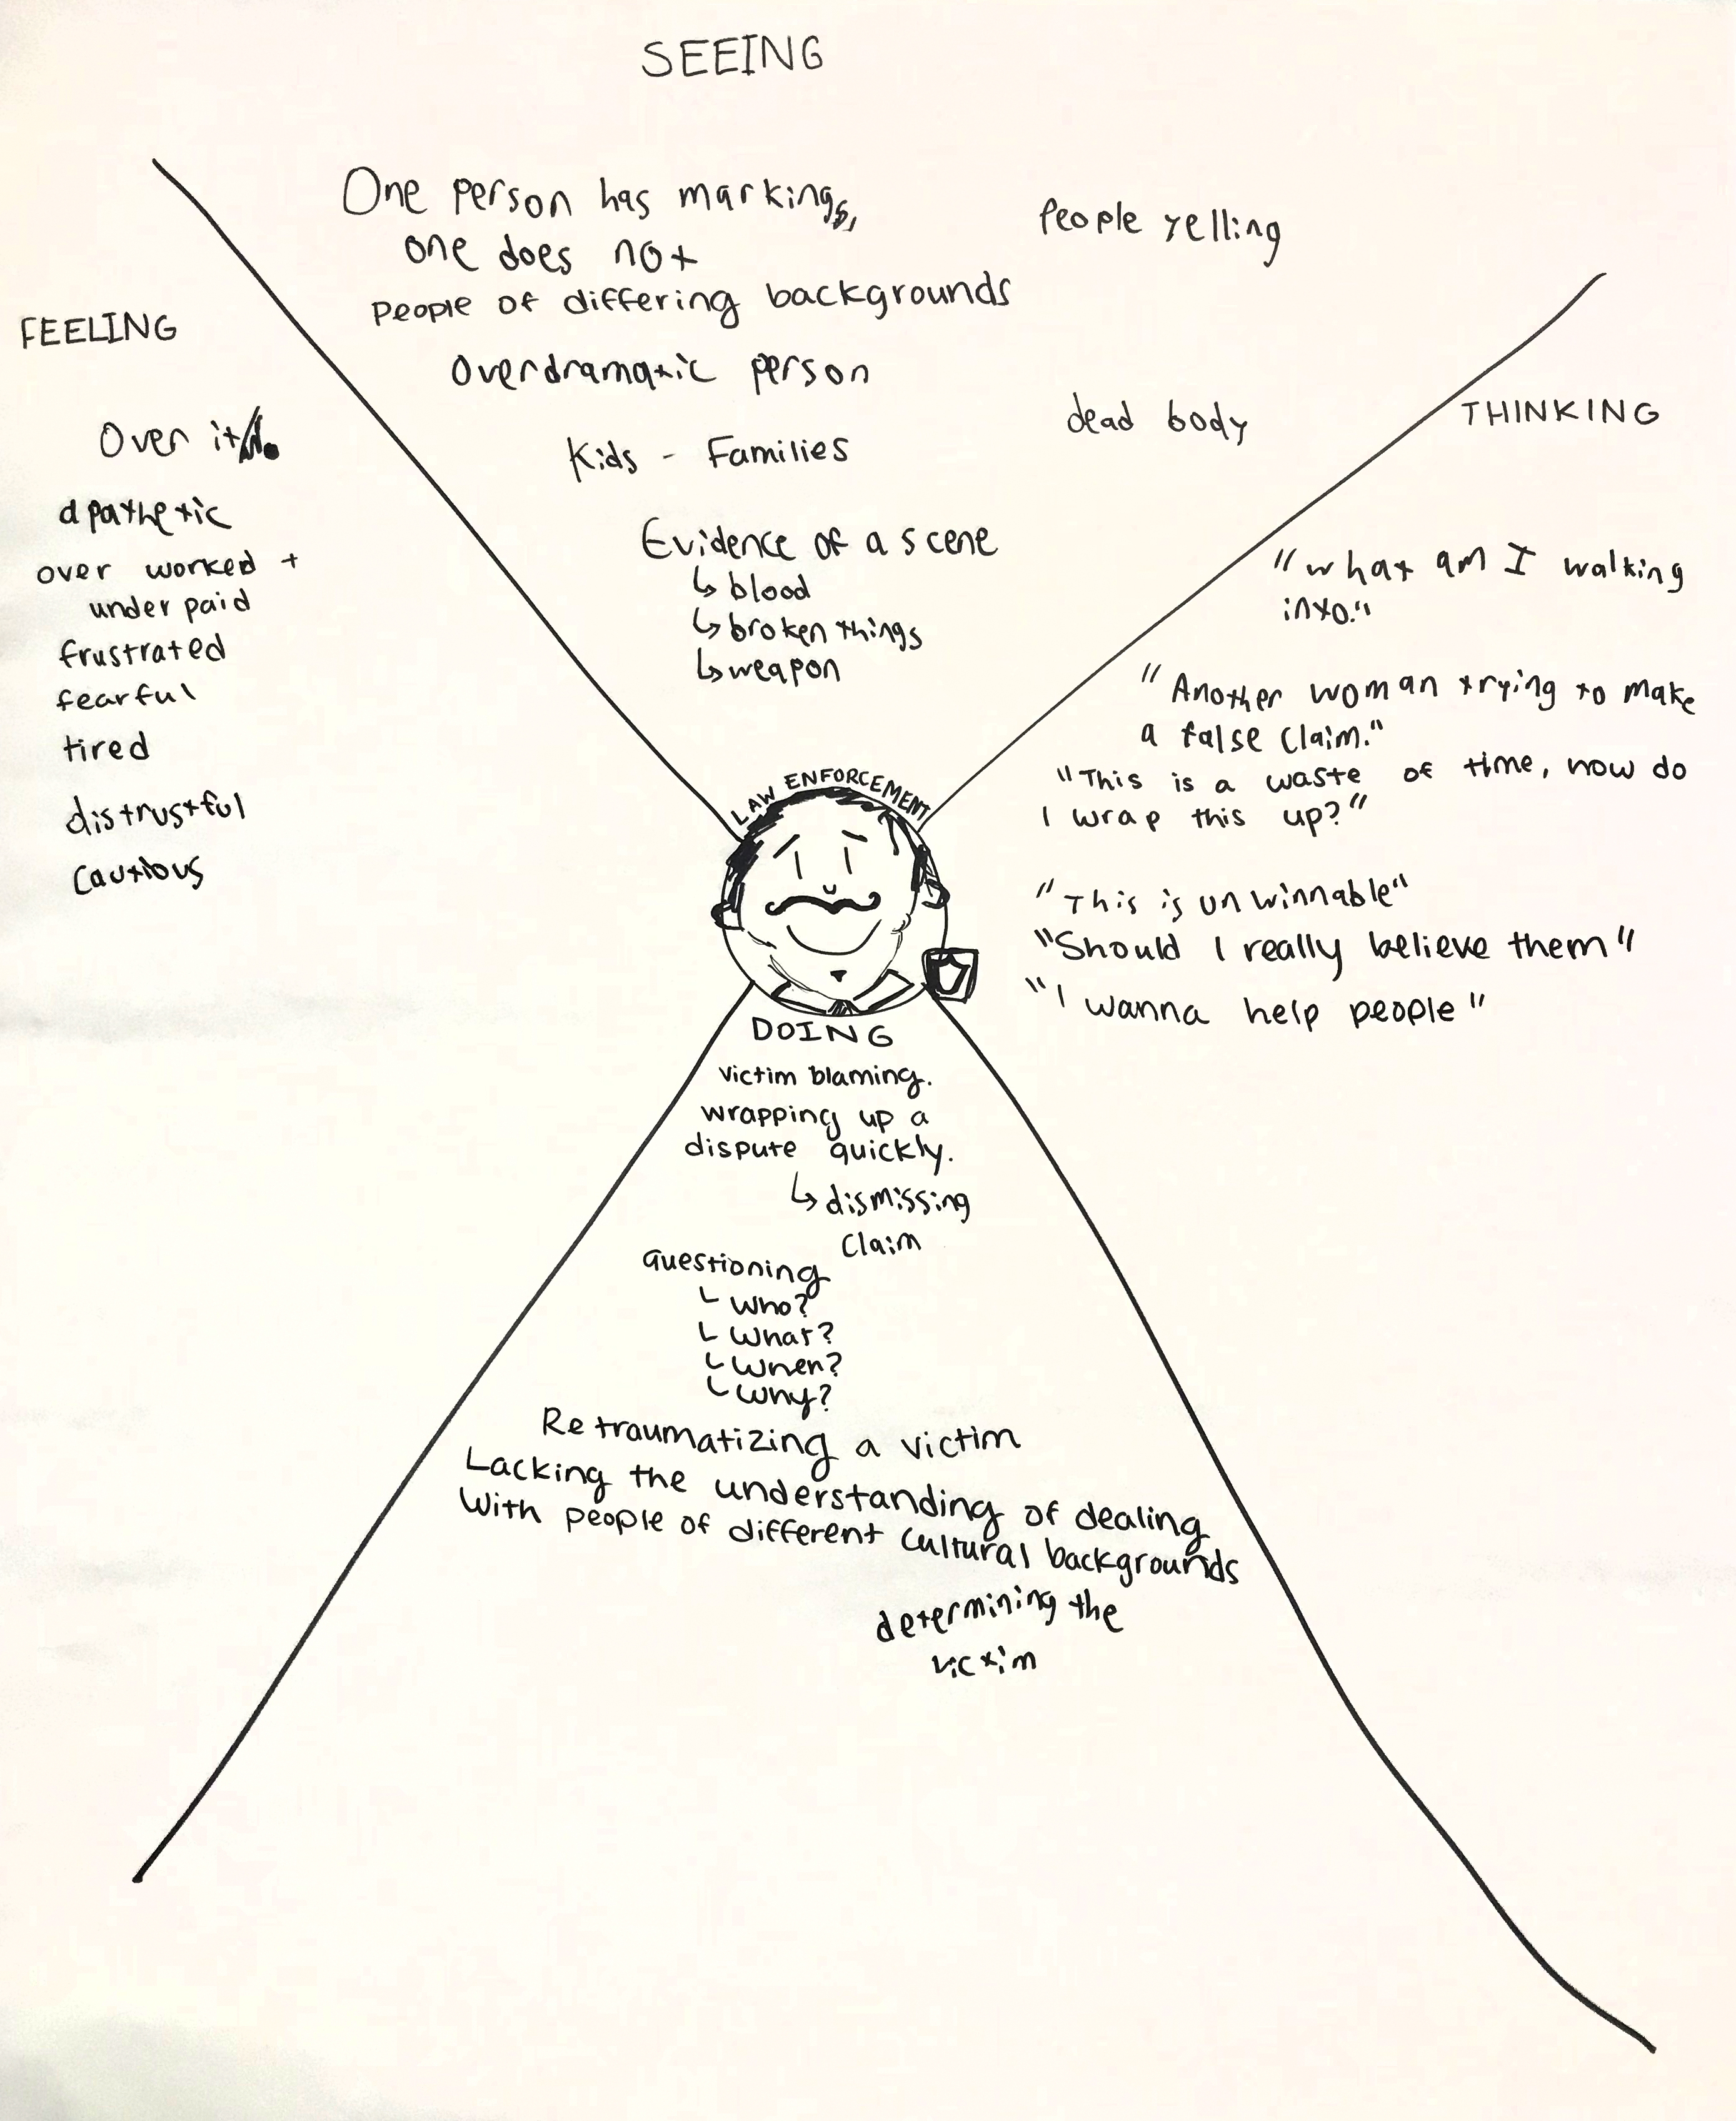 SEEING
One person has markings,
one does not
People of differing backgrounds
Overdramatic person
Kids - Families
Evidence of a scene
↳ blood
↳ broken things
↳ weapon
People yelling
dead body
FEELING
Over it.
apathetic
over worked +
under paid
frustrated
fearful
tired
distrustful
cautious
THINKING
"what am I walking
into."
"Another woman trying to make
a false claim."
"This is a waste of time, how do
I wrap this up?"
"This is unwinnable"
"Should I really believe them"
"I wanna help people"
LAW ENFORCEMENT
DOING
victim blaming.
wrapping up a
dispute quickly.
↳ dismissing
claim
questioning
└ who?
└ what?
└ when?
└ why?
Retraumatizing a victim
Lacking the understanding of dealing
with people of different cultural backgrounds
determining the
victim